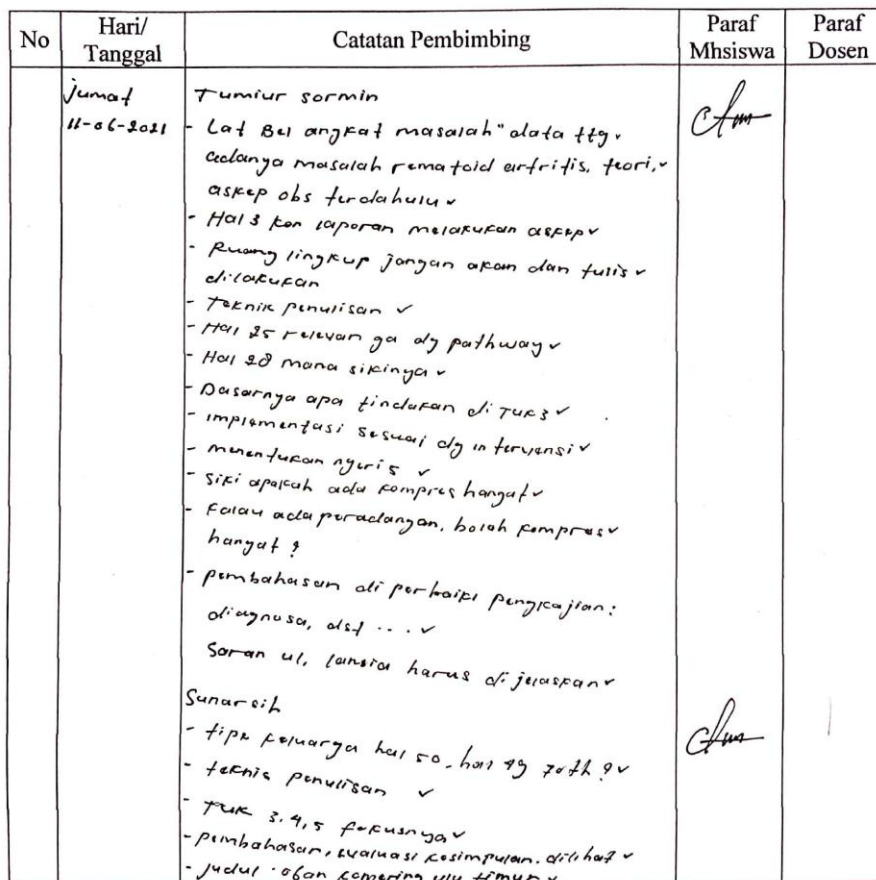 No Hari/ Tanggal Catatan Pembimbing Paraf Mhsiswa Paraf Dosen
Jumat Tumiur Sormin
11-06-2021 - Lat Bel angkat masalah" data ttg ✓
adanya masalah rematoid artritis, teori, ✓
askep obs terdahulu ✓
- Hal 3 kan laporan melakukan askep ✓
- Ruang lingkup jangan akan dan tulis ✓
dilakukan
- Teknik penulisan ✓
- Hal 25 relevan ga dg pathway ✓
- Hal 28 mana sikinya ✓
- Dasarnya apa tindakan di TUK 3 ✓
- implementasi sesuai dg intervensi ✓
- menentukan nyeri 5 ✓
- Siki apakah ada kompres hangat ✓
- Kalau ada peradangan, boleh kompres ✓
hangat ?
- pembahasan di perbaiki pengkajian :
diagnosa, dst ... ✓
Saran ul, lansia harus di jelaskan ✓
Sunarsih
- tipe keluarga hal 50, hal 49 70 th ? ✓
- teknis penulisan ✓
- TUK 3.4,5 fokusnya ✓
- pembahasan, evaluasi kesimpulan. dilihat ✓
- judul ogan komering ulu timur ✓